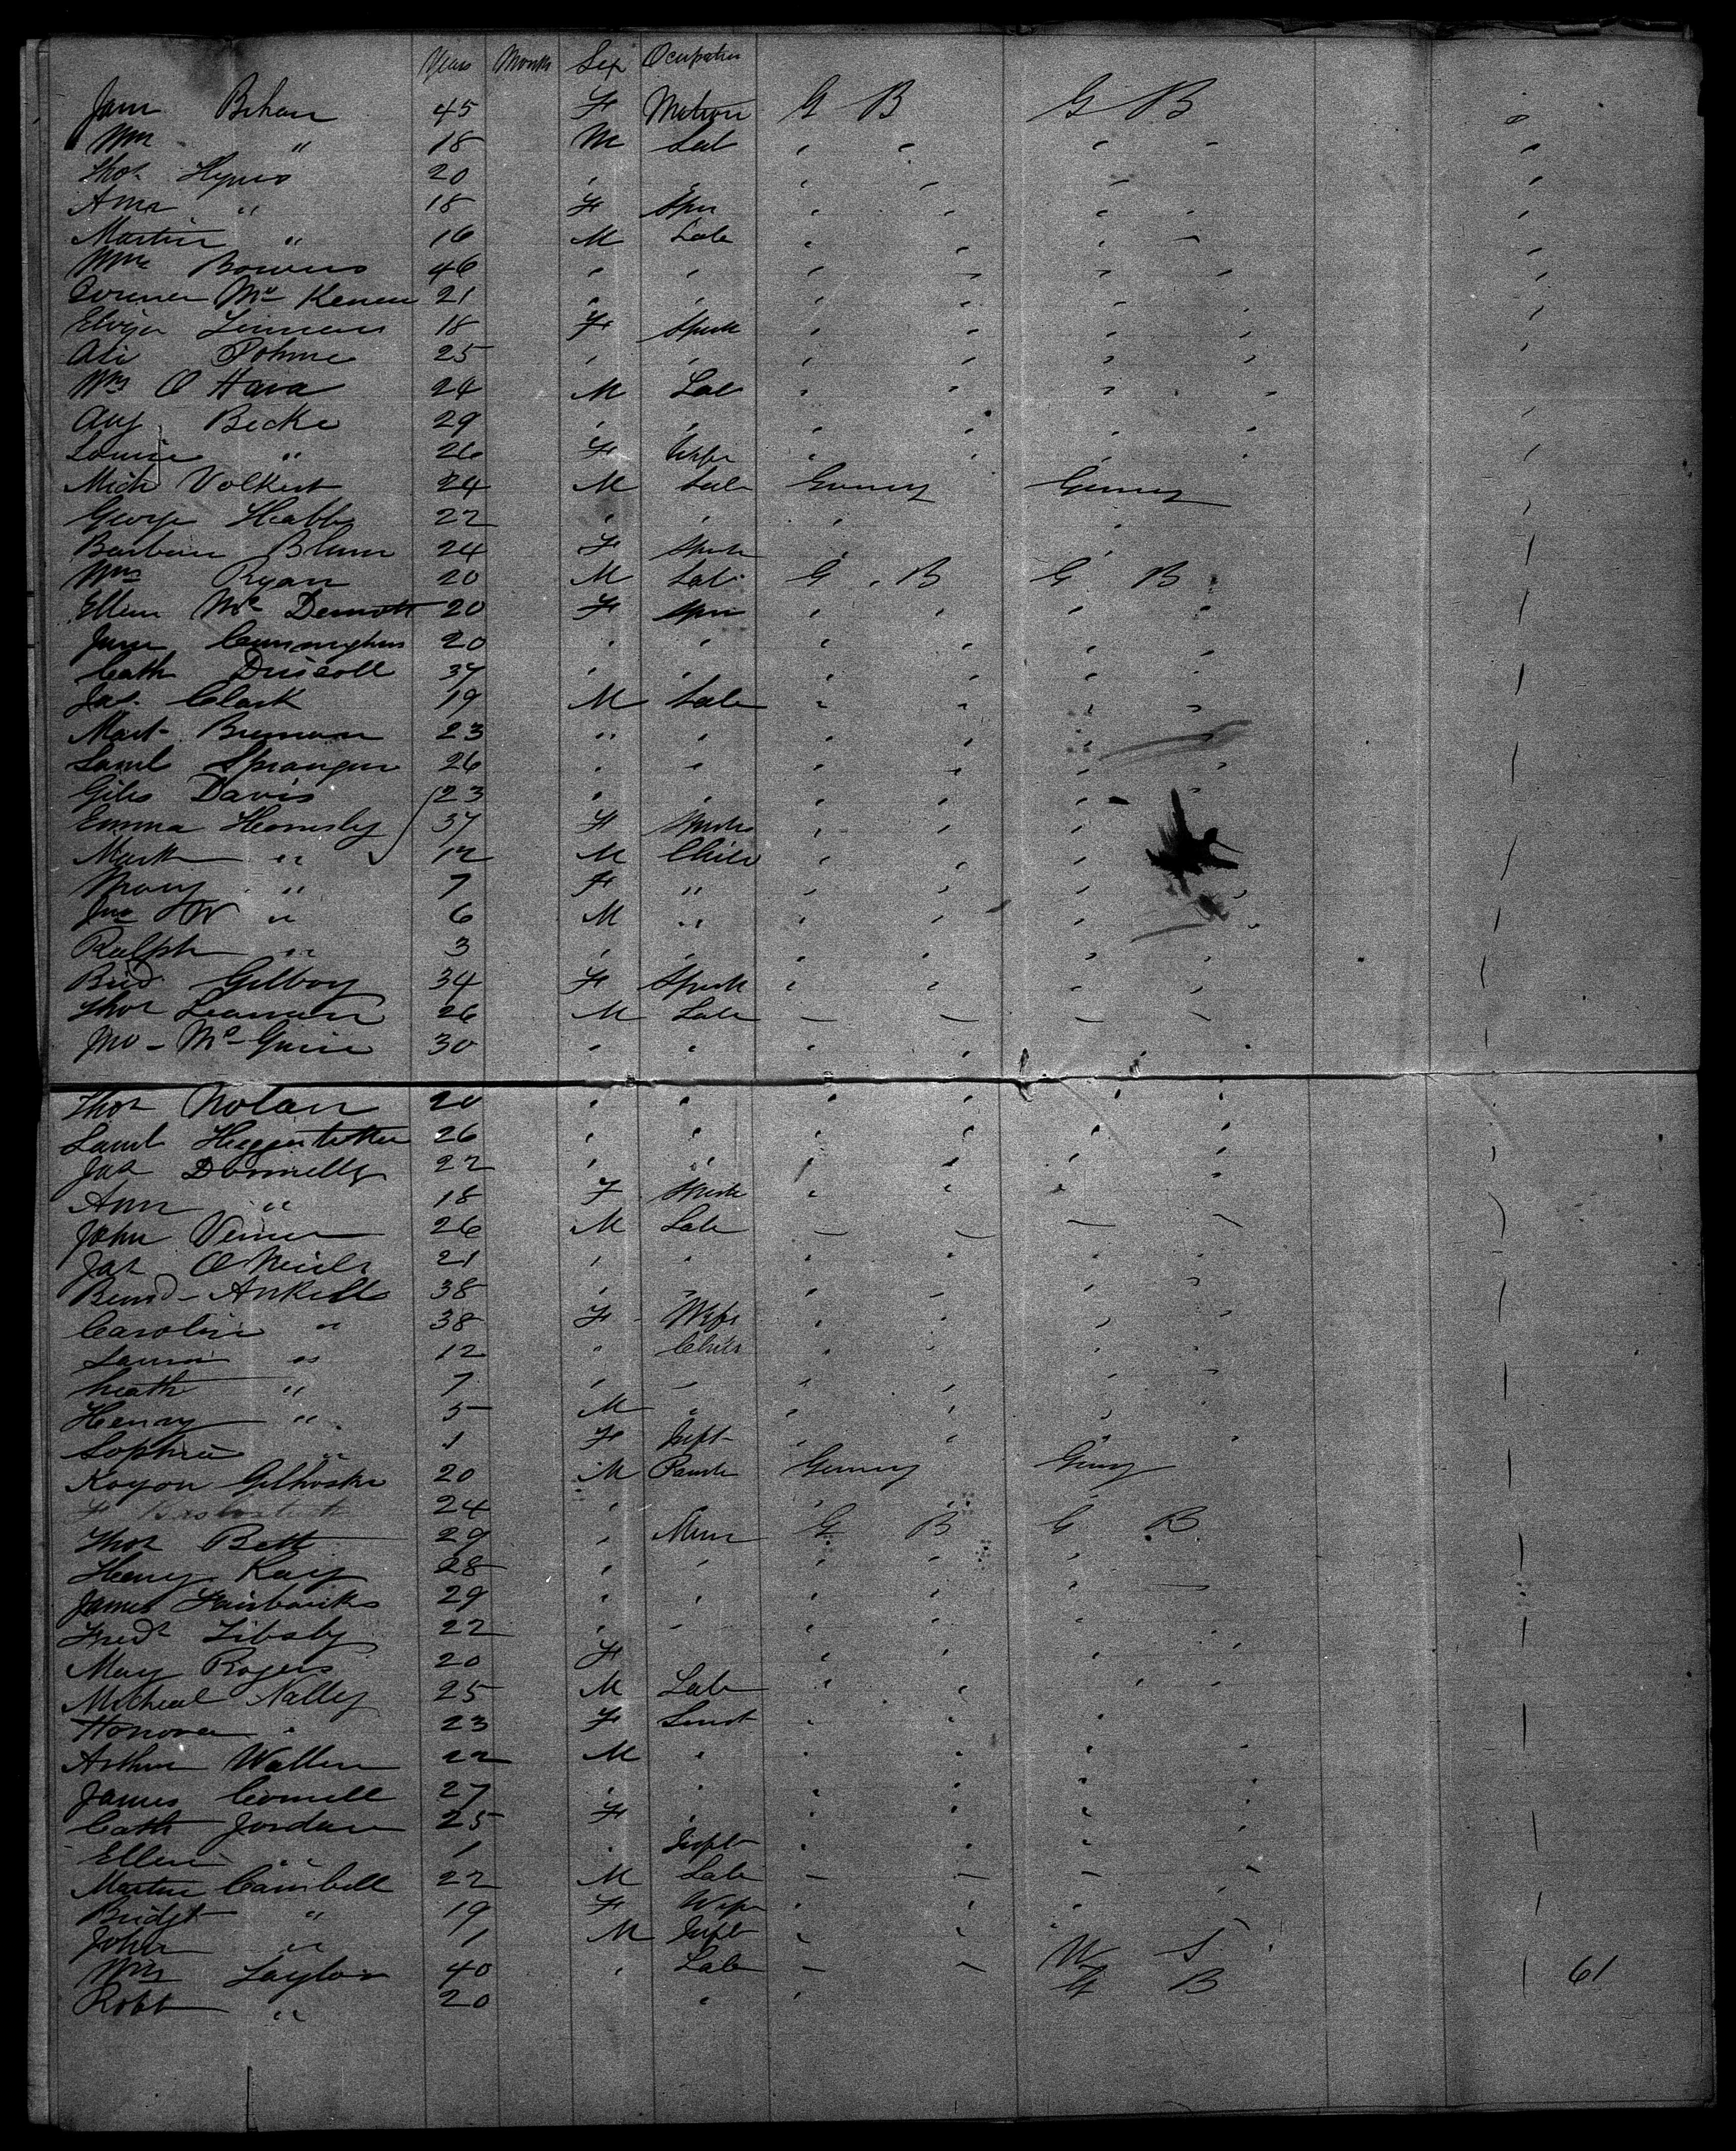 Years Months Sex Ocupation
Jane Behan 45 F Matron G B G B
Wm " 18 M Lab
Thos Hynes 20
Ann " 18 F Spin
Martin " 16 M Lab
Wm Bowers 46
Mc 21
18 F Spinst
25
Wm O Hara 24 M Lab
Aug Becke 29
Louise " 26 F Wife
Mich Volkert 24 M Lab Gerney Gerney
George 22
Barbara Blum 24 F Spins
Wm Ryan 20 M Lab G B G B
Ellen Mc Dermott 20 F Spin
Jane Cunningham 20
Cath Driscoll 37
Jas. Clark 19 M Lab
Mart Brennan 23
Saml Spranger 26
Giles Davis 23
Emma Hornsby 37 F Spinster
Mark " 12 M Child
Mary " 7 F "
Jno W " 6 M "
Ralph " 3
Brid Gilboy 34 F Spinst
Thos Leanan 26 M Lab
Jno - Mc Guire 30
Thos Nolan 20
Saml 26
Jas Donnelly 22
Ann " 18 F Spinst
John 26 M Lab
Jas O Neill 21
Bernd - Ankell 38
Caroline " 38 F Wife
Laura " 12 Child
" 7
Henry " 5 M
Sophia " 1 F Inft
20 M Gerney Gerny
24
Thos Bett 29 Miner G B G B
Henry Kay 28
James Fairbanks 29
Fredk Libsby 22
Mary Rogers 20 F
Micheal Nalley 25 M Lab
Honora " 23 F
Arthur Waller 22 M
James Connell 27
Cath Jordan 25 F
Ellen " 1 Inft
Martin Cambell 22 M Lab
Bridgt " 19 F Wife
John " 1 M Inft
Wm Taylor 40 Lab W S 61
Robt " 20 G B